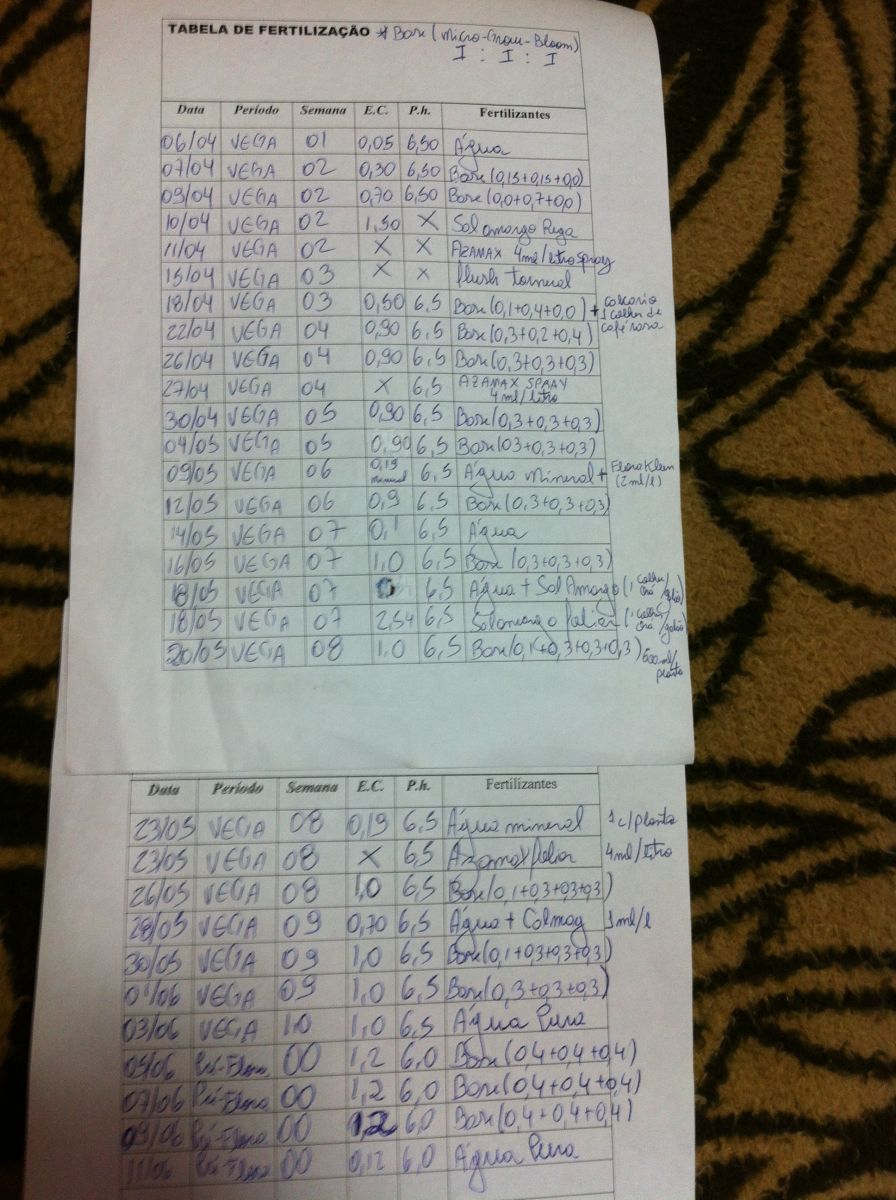 TABELA DE FERTILIZAÇÃO *Base (Micro-Grow-Bloom)
I : I : I
Data Período Semana E.C. P.h. Fertilizantes
06/04 VEGA 01 0,05 6,50 Água
07/04 VEGA 02 0,30 6,50 Base (0,15+0,15+0,0)
09/04 VEGA 02 0,70 6,50 Base (0,0+0,7+0,0)
10/04 VEGA 02 1,50 X Sal amargo Rega
11/04 VEGA 02 X X AZAMAX 4ml/litro spray
15/04 VEGA 03 X X flush torneral
18/04 VEGA 03 0,50 6,5 Base (0,1+0,4+0,0) + calcario 1 colher de café rasa
22/04 VEGA 04 0,90 6,5 Base (0,3+0,2+0,4)
26/04 VEGA 04 0,90 6,5 Base (0,3+0,3+0,3)
27/04 VEGA 04 X 6,5 AZAMAX SPRAY 4ml/litro
30/04 VEGA 05 0,90 6,5 Base (0,3+0,3+0,3)
04/05 VEGA 05 0,90 6,5 Base (03+0,3+0,3)
09/05 VEGA 06 0,19 mineral 6,5 Água Mineral + Flora Kleen (2ml/l)
12/05 VEGA 06 0,9 6,5 Base (0,3+0,3+0,3)
14/05 VEGA 07 0,1 6,5 Água
16/05 VEGA 07 1,0 6,5 Base (0,3+0,3+0,3)
18/05 VEGA 07 6,5 Água + Sal Amargo (1 colher chá/galão)
18/05 VEGA 07 2,54 6,5 Sal amargo foliar (1 colher chá/galão)
20/05 VEGA 08 1,0 6,5 Base (0,1+0,3+0,3+0,3) 600ml/planta
Data Período Semana E.C. P.h. Fertilizantes
23/05 VEGA 08 0,19 6,5 Água mineral 1 c/planta
23/05 VEGA 08 X 6,5 Azamax foliar 4ml/litro
26/05 VEGA 08 1,0 6,5 Base (0,1+0,3+0,3+0,3)
28/05 VEGA 09 0,70 6,5 Água + Calmag 1ml/l
30/05 VEGA 09 1,0 6,5 Base (0,1+0,3+0,3+0,3)
01/06 VEGA 09 1,0 6,5 Base (0,3+0,3+0,3)
03/06 VEGA 10 1,0 6,5 Água Pura
05/06 Pré-Flora 00 1,2 6,0 Base (0,4+0,4+0,4)
07/06 Pré-Flora 00 1,2 6,0 Base (0,4+0,4+0,4)
09/06 Pré-Flora 00 1,2 6,0 Base (0,4+0,4+0,4)
11/06 Pré-Flora 00 0,12 6,0 Água Pura